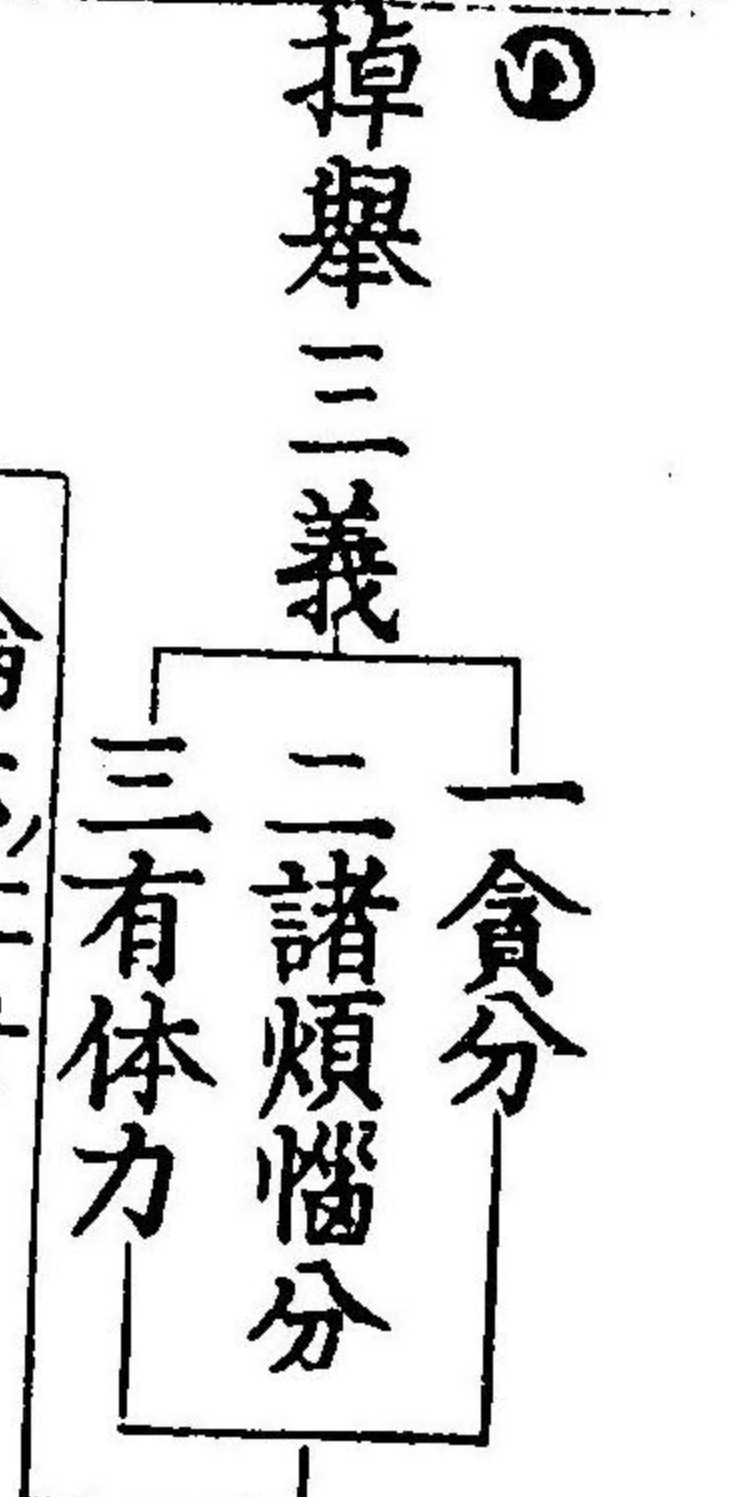 掉舉三義
一貪分
二諸煩惱分
三有体力